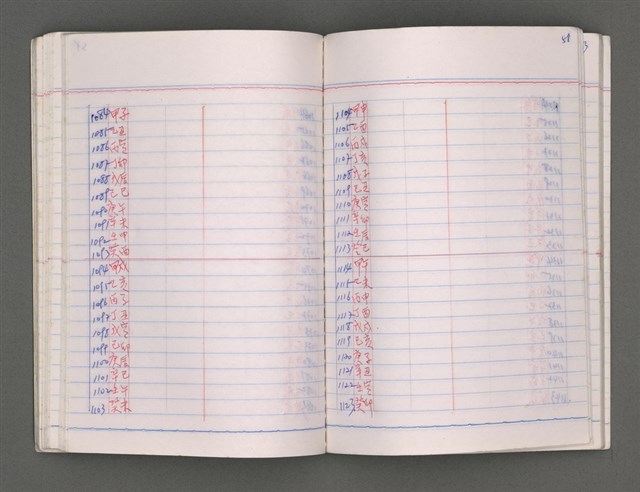 1084 甲子
1085 乙丑
1086 丙寅
1087 丁卯
1088 戊辰
1089 己巳
1090 庚午
1091 辛未
1092 壬申
1093 癸酉
1094 甲戌
1095 乙亥
1096 丙子
1097 丁丑
1098 戊寅
1099 己卯
1100 庚辰
1101 辛巳
1102 壬午
1103 癸未
1104 甲申
1105 乙酉
1106 丙戌
1107 丁亥
1108 戊子
1109 己丑
1110 庚寅
1111 辛卯
1112 壬辰
1113 癸巳
1114 甲午
1115 乙未
1116 丙申
1117 丁酉
1118 戊戌
1119 己亥
1120 庚子
1121 辛丑
1122 壬寅
1123 癸卯